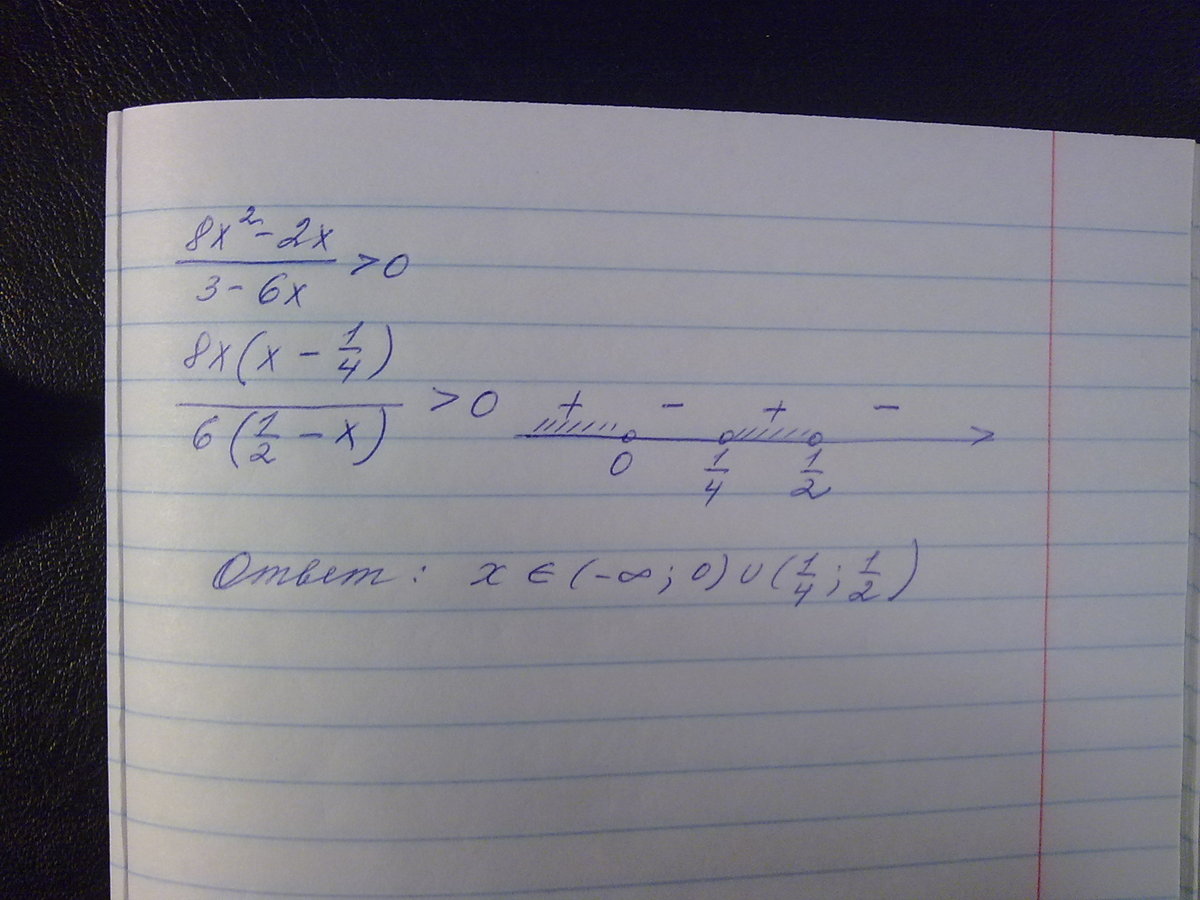 8x² - 2x
3 - 6x
> 0
8x(x - 1/4)
6(1/2 - x)
> 0
+ - + -
0 1/4 1/2
Ответ: x ∈ (-∞; 0) ∪ (1/4; 1/2)